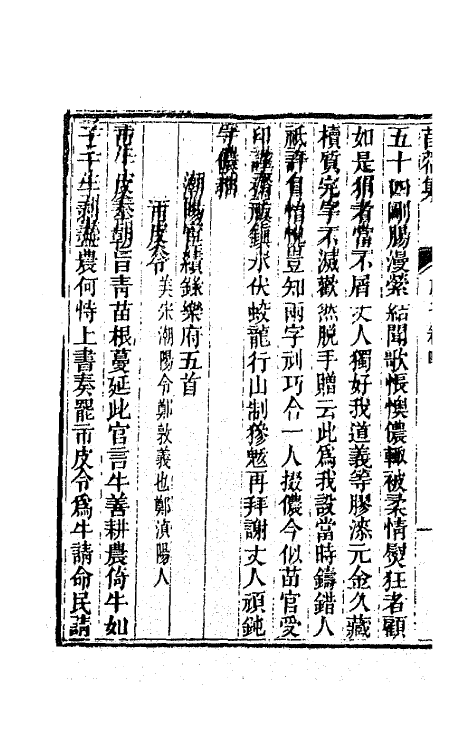 五十四剛腸漫縈結聞歌悵懊儂輙被柔情熨狂者顧
如是狷者當不屑丈人獨好我道義等膠漆元金久藏
櫝質完孚不滅歡然脫手贈云此爲我設當時鑄錯人
祇許自怡悅豈知兩字刓巧合一人掇儂今似苗官受
印謹循祓鎮水伏蛟龍行山制猕魃再拜謝丈人頑鈍
守儂拙
潮陽官績錄樂府五首
市皮令 美宋潮陽令鄭敦義也鄭滇陽人
市牛皮奏朝旨青苗根蔓延此官言牛善耕農倚牛如
子千牛剥盡農何恃上書奏罷市皮令爲牛請命民請